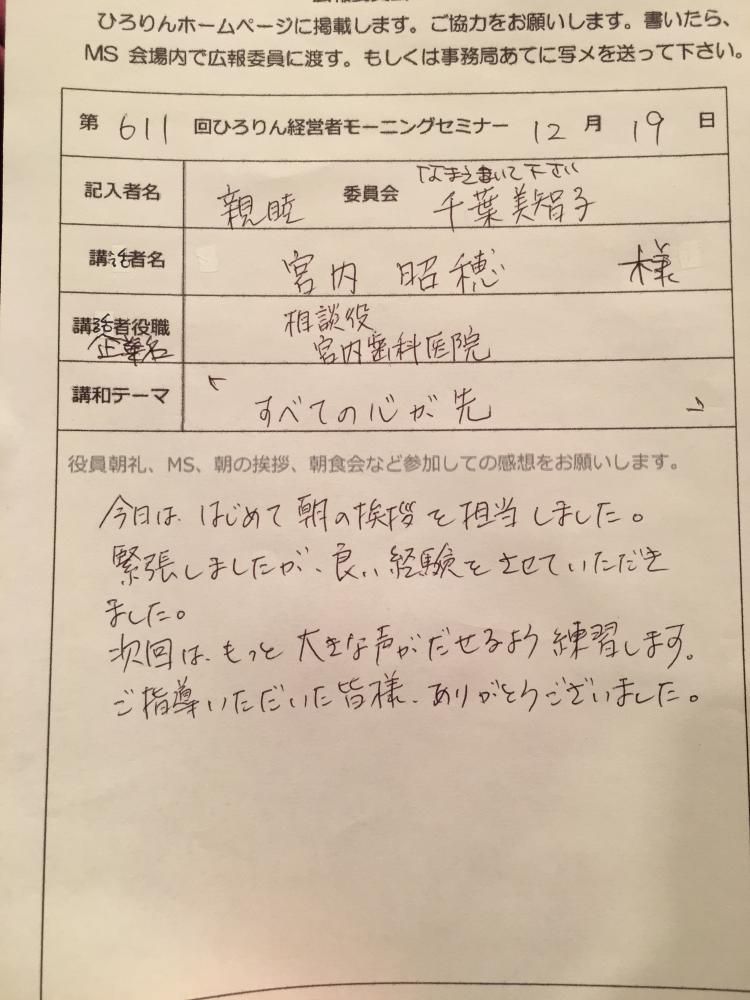 ひろりんホームページに掲載します。ご協力をお願いします。書いたら、
MS 会場内で広報委員に渡す。もしくは事務局あてに写メを送って下さい。
第 611 回ひろりん経営者モーニングセミナー 12 月 19 日
なまえ書いて下さい
記入者名 親睦 委員会 千葉美智子
講話者名 宮内 昭穂 様
講話者役職 相談役
企業名 宮内歯科医院
講和テーマ 「すべての心が先」
役員朝礼、MS、朝の挨拶、朝食会など参加しての感想をお願いします。
今日は、はじめて朝の挨拶を担当しました。
緊張しましたが、良い経験をさせていただき
ました。
次回は、もっと大きな声がだせるよう練習します。
ご指導いただいた皆様、ありがとうございました。